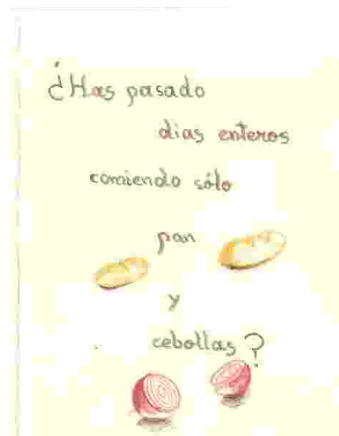 ¿Has pasado
dias enteros
comiendo sólo
pan
y
cebollas?